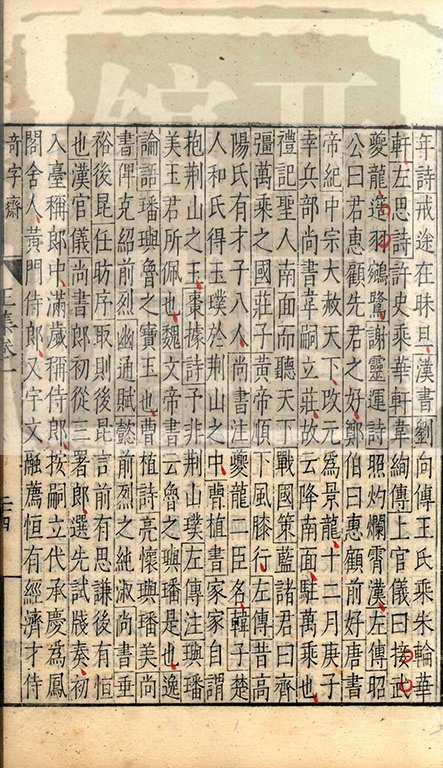 年詩戒途在昧旦漢書劉向傳王氏乘朱輪華
軒左思詩許史乘華軒韋絢傳上官儀曰接武
夔龍簉羽鵷鷺謝靈運詩照灼爛霄漢左傳昭
公曰君惠顧先君之好鄭伯曰惠顧前好唐書
帝紀中宗大赦天下改元爲景龍十二月庚子
幸兵部尚書韋嗣立莊故云降南面駐萬乘也
禮記聖人南面而聽天下戰國策藍諸君曰齊
彊萬乘之國莊子黃帝順下風膝行左傳昔高
陽氏有才子八人尚書注夔龍二臣名韓子楚
人和氏得玉璞於荆山之中曹植書家家自謂
抱荆山之玉棗據詩予非荆山璞左傳注璵璠
美玉君所佩也魏文帝書云魯之璵璠是也逸
論語璠璵魯之寶玉也曹植詩亮懷璵璠美尚
書俾克紹前烈幽通賦懿前烈之純淑尚書垂
裕後昆任昉序取則後昆言前有思謙後有恒
也漢官儀尚書郎初從三署郎選先試牋奏初
入臺稱郎中滿歲稱侍郎按嗣立代承慶爲鳳
閣舍人黃門侍郎又宇文融薦恒有經濟才侍
奇字齋